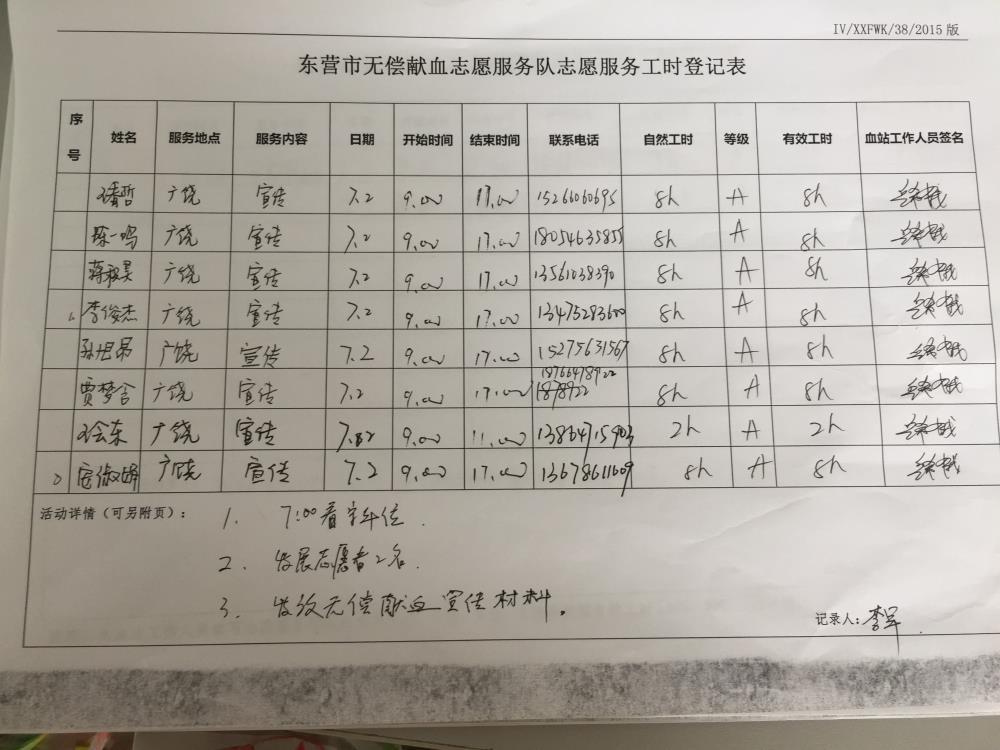 IV/XXFWK/38/2015 版
东营市无偿献血志愿服务队志愿服务工时登记表
序号 姓名 服务地点 服务内容 日期 开始时间 结束时间 联系电话 自然工时 等级 有效工时 血站工作人员签名
广饶 宣传 7.2 9.00 17.00 15266060695 8h A 8h
陈一鸣 广饶 宣传 7.2 9.00 17.00 18054635855 8h A 8h
蒋淑昊 广饶 宣传 7.2 9.00 17.00 13561038390 8h A 8h
李俊杰 广饶 宣传 7.2 9.00 17.00 13475283600 8h A 8h
孙旭昂 广饶 宣传 7.2 9.00 17.00 15275631567 8h A 8h
贾梦含 广饶 宣传 7.2 9.00 17.00 18766478922 8h A 8h
广饶 宣传 7.2 9.00 11.00 13864715903 2h A 2h
广饶 宣传 7.2 9.00 17.00 13678611609 8h A 8h
活动详情（可另附页）： 1. 7:00看车占位.
2. 发展志愿者2名.
3. 发放无偿献血宣传材料。
记录人：李军